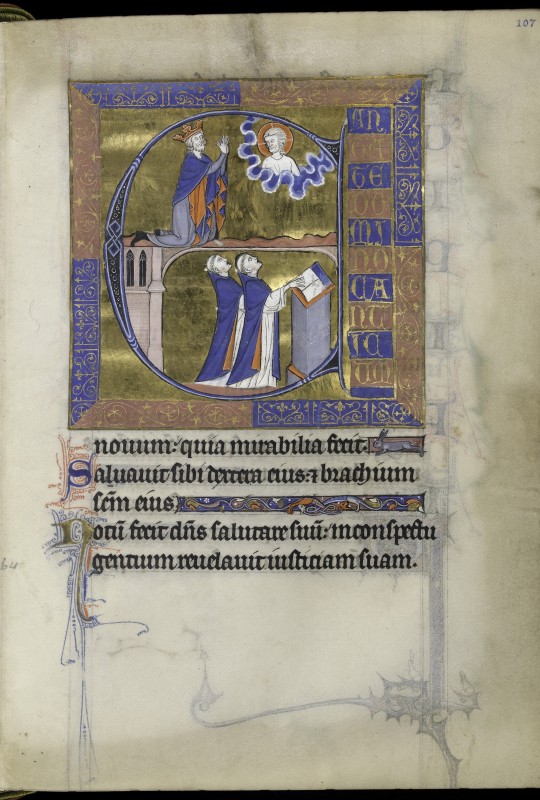 107
C
AN
TA
TE
DO
MI
NO
CA
NT
IC
UM
nouum: quia mirabilia fecit.
Saluauit sibi dextera eius: ⁊ brachium
scm̄ eius
Notū fecit dn̄s salutare suū: in conspectu
gentium reuelauit iusticiam suam.
64